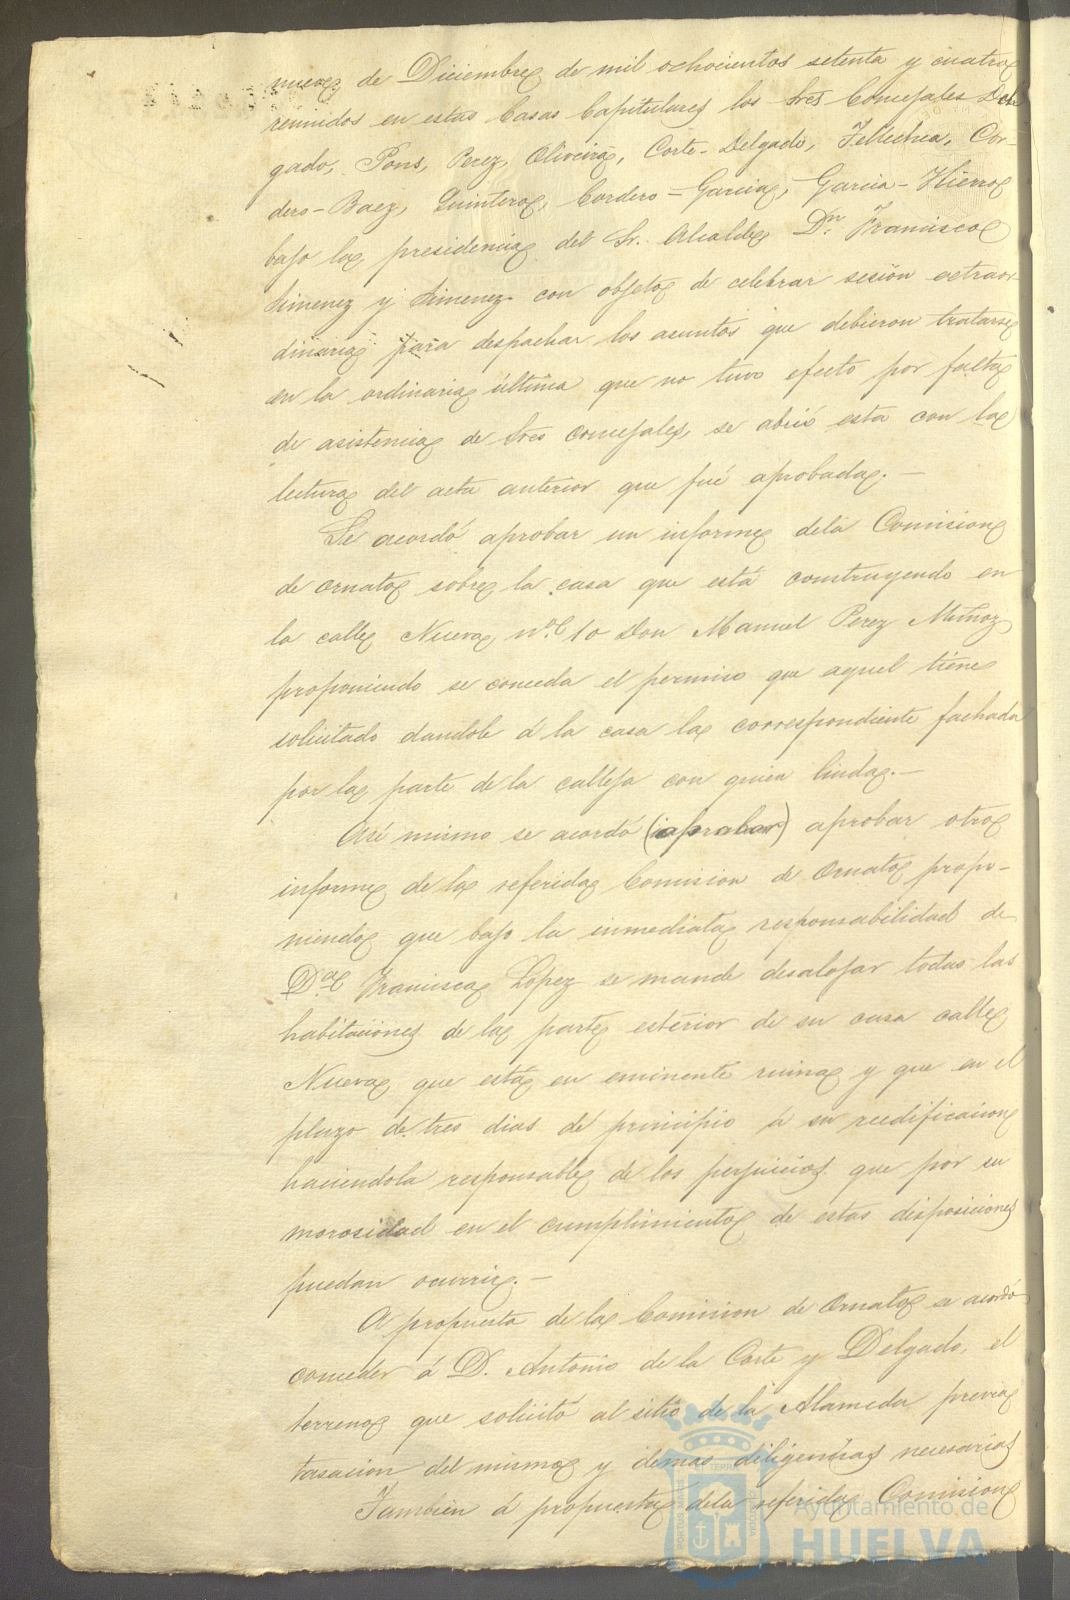 nueve de Diciembre de mil ochocientos setenta y cuatro
reunidos en estas Casas Capitulares los Sres Concejales Del
gado, Pons, Perez, Oliveira, Corte-Delgado, Tellechea, Cor-
dero-Baez, Quintero, Cordero-Garcia, Garcia-Hierro
bajo la presidencia del Sr. Alcalde Dn. Francisco
Jimenez y Jimenez con objeto de celebrar sesion extraor
dinaria para despachar los asuntos que debieron tratarse
en la ordinaria última que no tuvo efecto por falta
de asistencia de Sres concejales, se abrió esta con la
lectura del acta anterior que fué aprobada.-
Se acordó aprobar un informe dela Comision
de ornato sobre la casa que está construyendo en
la calle Nueva, no. 10 Don Manuel Perez Muñoz
proponiendo se conceda el permiso que aquel tiene
solicitado dandole á la casa la correspondiente fachada
por la parte de la calleja con quien linda.-
Asi mismo se acordó (aprobar) aprobar otro
informe de la referida Comision de Ornato propo-
niendo que bajo la inmediata responsabilidad de
D.a Francisca Lopez se mande desalojar todas las
habitaciones de la parte esterior de su casa calle
Nueva que está en eminente ruina y que en el
plazo de tres dias dé principio á su reedificacion
haciendola responsable de los perjuicios que por su
morosidad en el cumplimiento de estas disposiciones
puedan ocurrir.-
A propuesta de la Comision de Ornato se acordó
conceder á D. Antonio de la Corte y Delgado, el
terreno que solicitó al sitio de la Alameda previa
tasacion del mismo y demas diligencias necesarias
Tambien á propuesta dela referida Comision
Ayuntamiento de
HUELVA